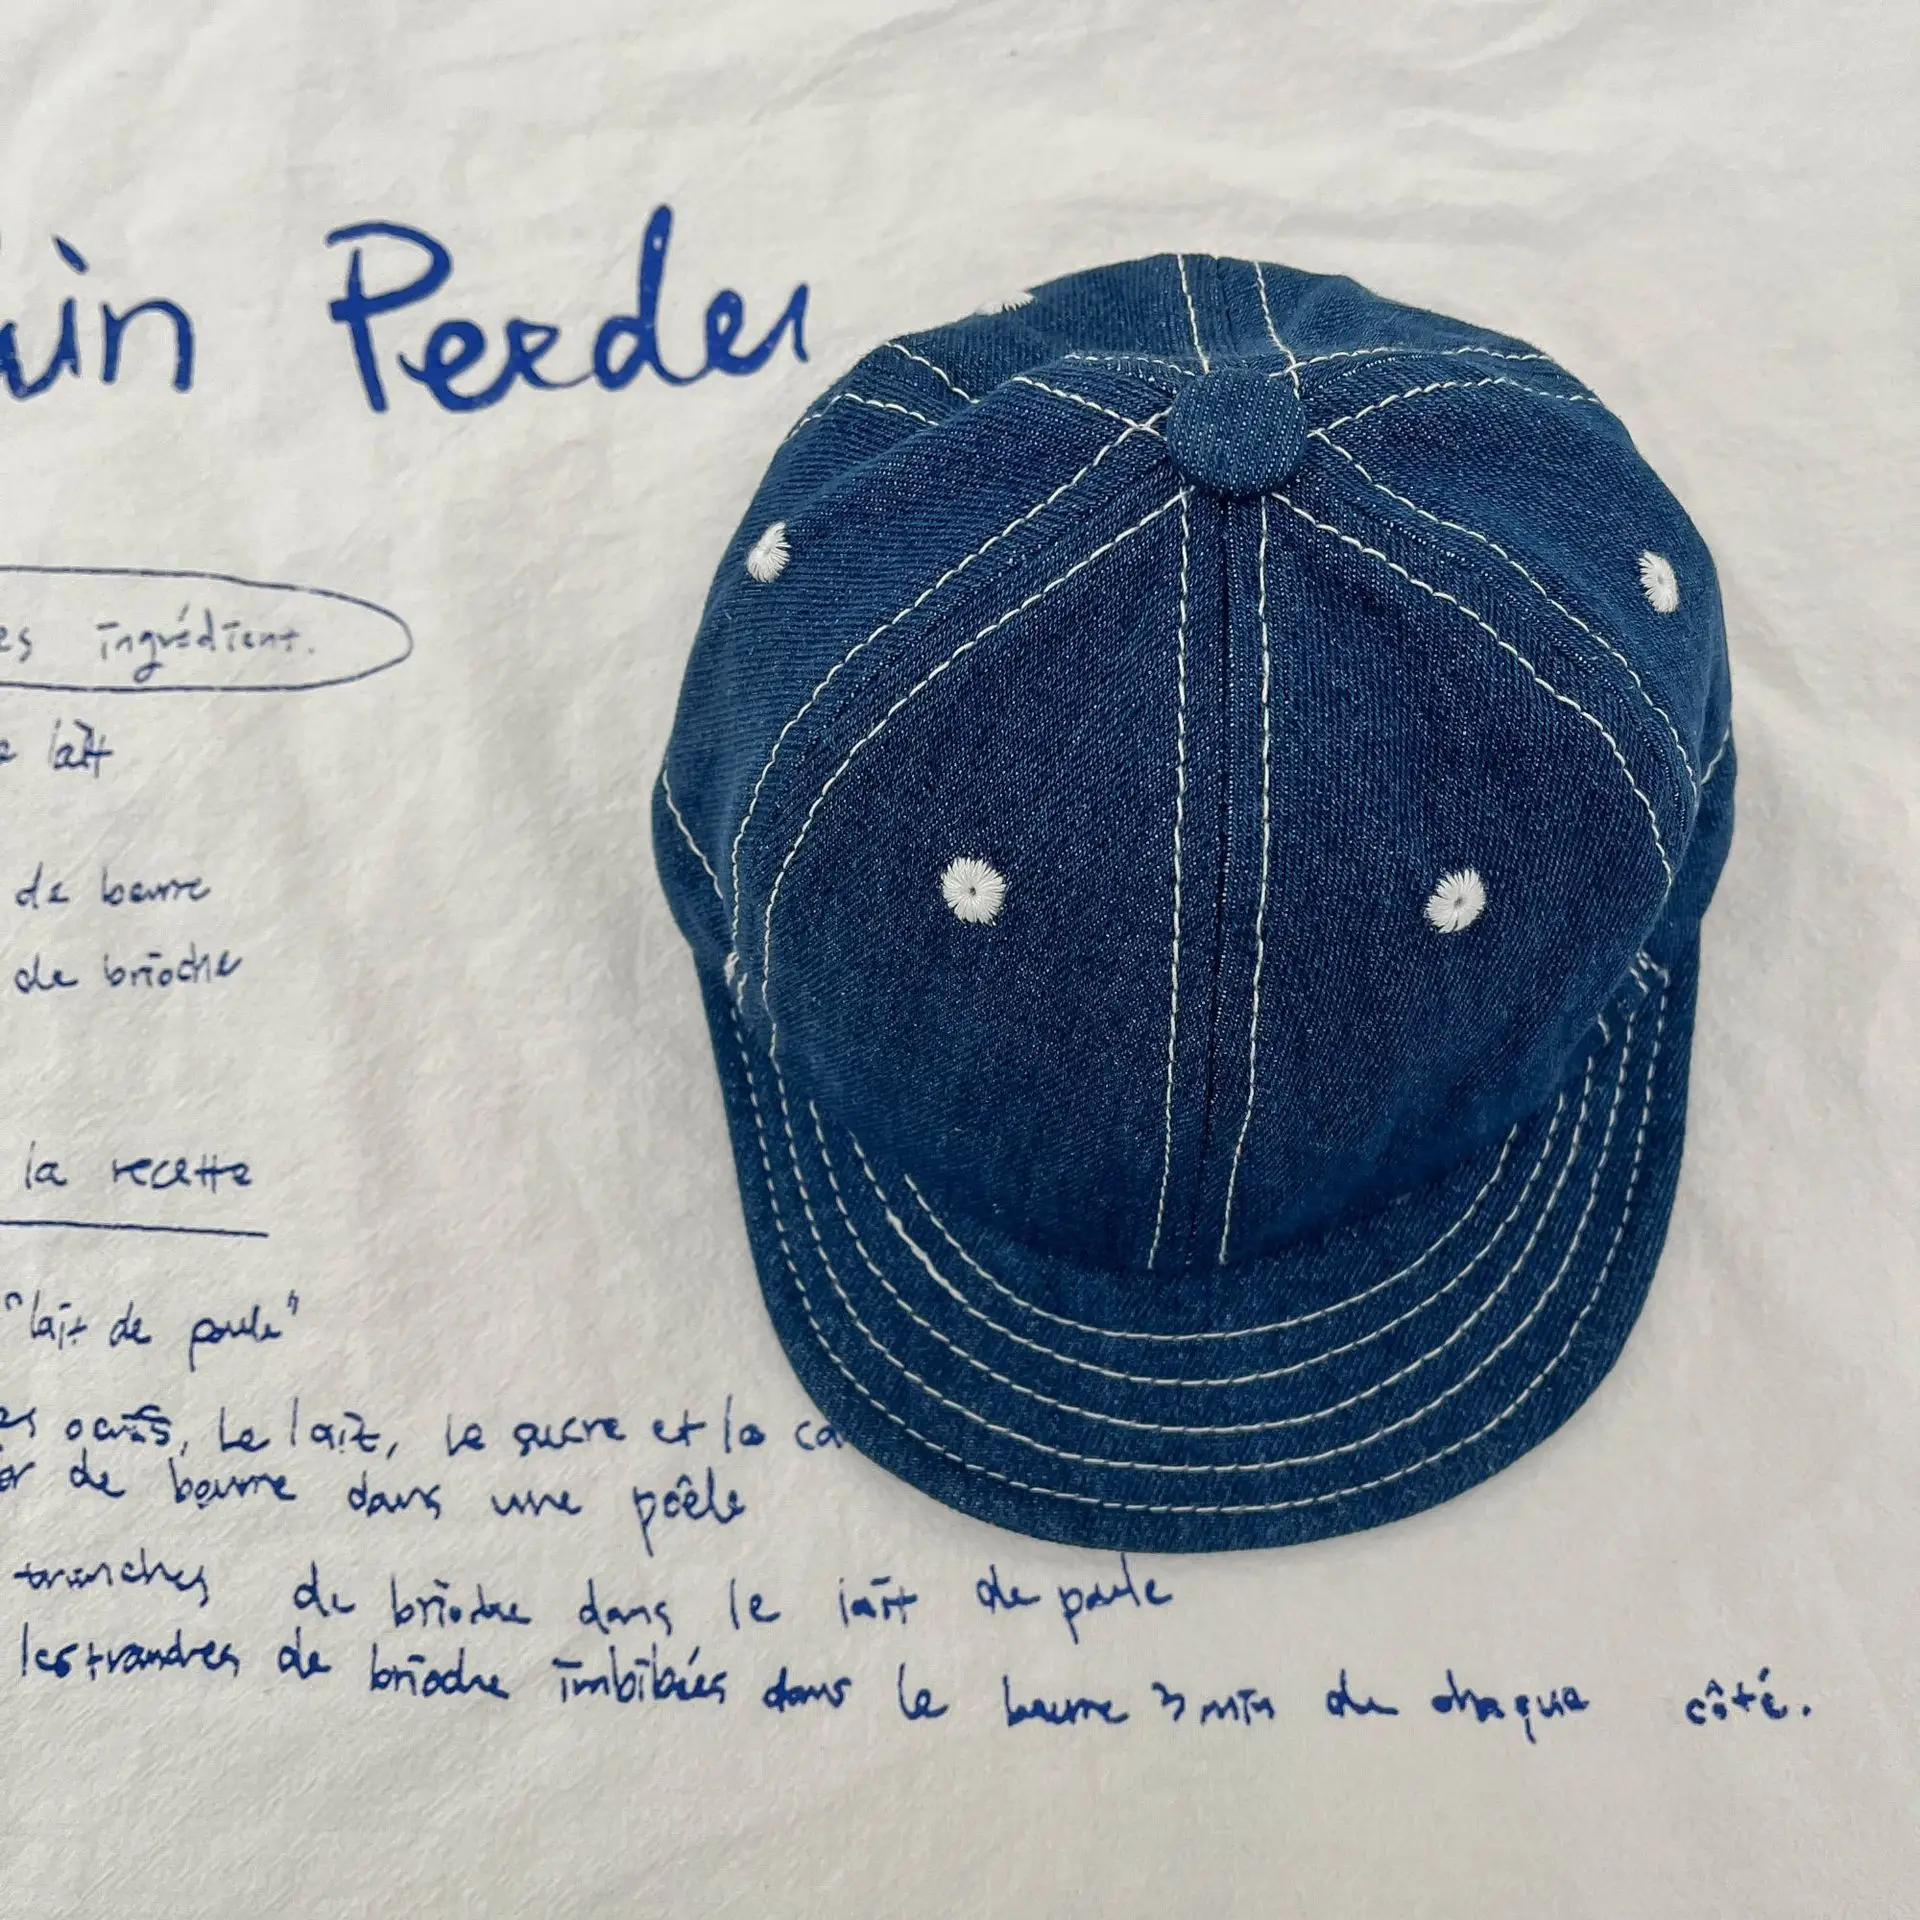 ain Perdu
es ingrédient.
lait
de beurre
de brioche
la recette
"lait de poule"
es oeufs, le lait, le sucre et la ca
de beurre dans une poêle
tranches de brioche dans le lait de poule
les tranches de brioche imbibées dans le beurre 3 min de chaque côté.